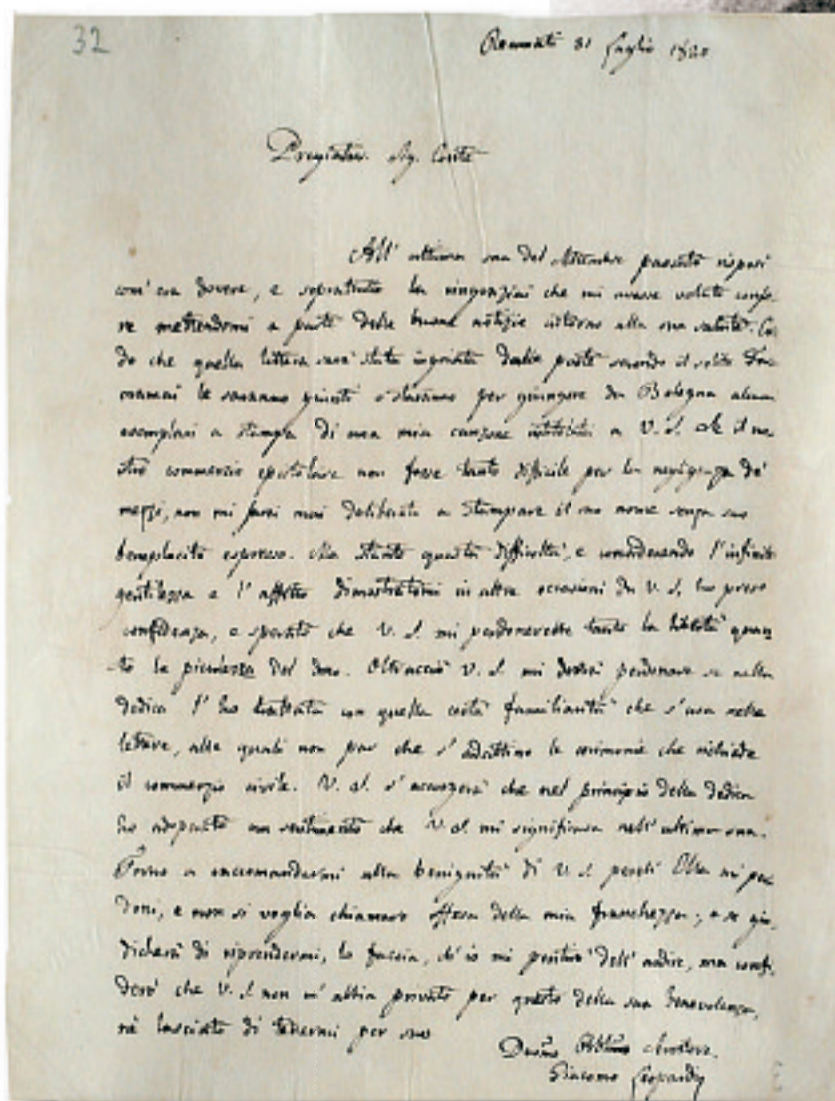 32
Recanati 31 Luglio 1820
Pregiatmo. Sig. Conte
All' ultima sua del Settembre passato risposi
com' era dovere, e soprattutto la ringraziai che mi avesse voluto conso-
re mettendomi a parte delle buone notizie intorno alla sua salute. Cre-
do che quella lettera sarà stata ingoiata dalle poste secondo il solito. Ora
oramai le saranno giunti o staranno per giungere da Bologna alcuni
esemplari a stampa di una mia canzone intitolata a V. S. Se il no-
stro commercio epistolare non fosse tanto difficile per la negligenza de'
mezzi, non mi sarei mai deliberato a stampare il suo nome senza suo
beneplacito espresso. Ma stante questa difficoltà, e considerando l'infinita
gentilezza e l' affetto dimostratomi in altre occasioni da V. S. ho preso
confidenza, e sperato che V. S. mi perdonerebbe tanto la libertà quan-
to la piccolezza del dono. Oltracciò V. S. mi dovrà perdonare se nella
dedica l' ho trattata con quella certa familiarità che s' usa nelle
lettere, alle quali non par che s' adattino le cerimonie che richiede
il commercio civile. V. S. s' accorgerà che nel principio della dedica
ho adoperato un sentimento che V. S. mi significava nell' ultima sua.
Torno a raccomandarmi alla benignità di V. S. perch' Ella mi per-
doni, e non si voglia chiamare offesa della mia franchezza; e se giu-
dicherà di riprendermi, lo faccia, ch' io mi pentirò dell' ardire, ma confi-
derò che V. S. non m' abbia privato per questo della sua benevolenza,
nè lasciato di tenermi per suo
Devmo Obblmo Servitore
Giacomo Leopardi